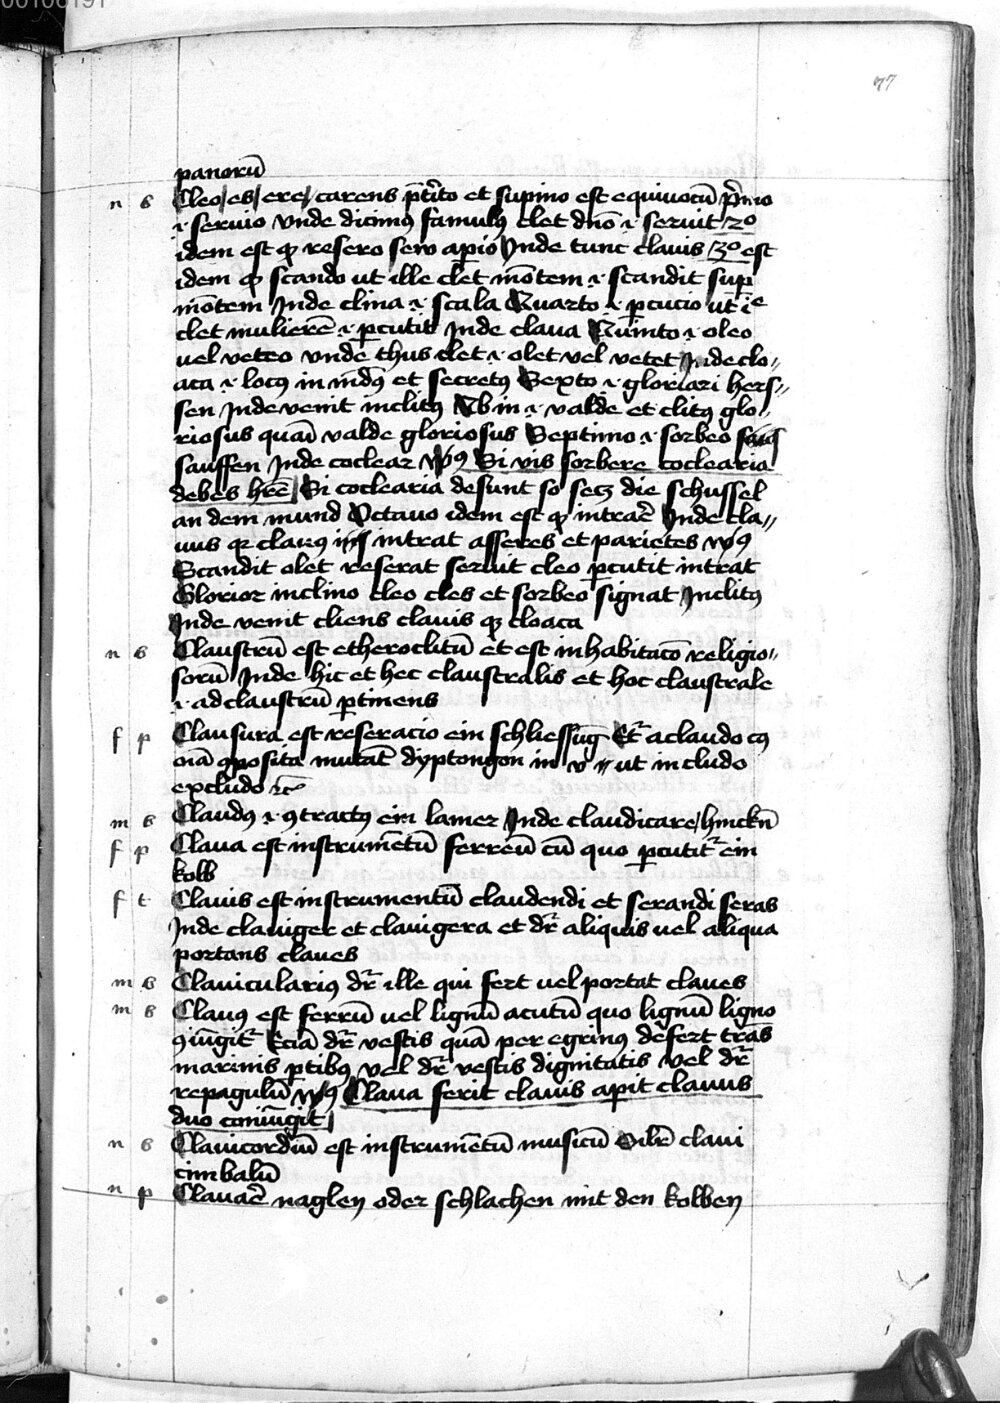 00106191
77
panorū
n s Cleo es ere carens p̄t̄ito et supino est equiuocū p̄rimo
.i. seruio vnde dicimus famulus clet dn̄o .i. seruit 2º
idem est qd resero sew aperio Inde tunc clauis 3º est
idem qd scando ut ille clet mōtem .i. scandit sup
mōtem Inde clina .i. scala Quarto .i. p̄cucio ut ie
clet mulierē .i. p̄cutit Inde claua Quinto .i. oleo
uel veteo vnde thus clet .i. olet vel vetet Inde clo„
aca .i. locus inmūdus et secretus Sexto .i. gloriari hers„
sen Inde venit inclitus Ab in .i. valde et clitus glo„
riosus quasi valde gloriosus Septimo .i. sorbeo
sauffen Inde coclear vṣ9 Si vis sorbere coclearia
debes hr̄e Si coclearia desunt so secz die schussel
an dem mund Octauo idem est qd intrare Inde cla„
uus qr clauus intrat asseres et parietes vṣ9
Scandit olet reserat seruit cleo p̄cutit intrat
Glorior inclino cleo cles et sorbeo signat Inclitus
Inde venit cliens clauis qz cloaca
n s Claustrū est etheroclitū et est inhabitacō religio„
sorū Inde hic et hec claustralis et hoc claustrale
.i. ad claustrū p̄tinens
f p Clausura est reseracio ein schliessūg Et r̄ a claudo cꝯ
oīa ꝯposita mutāt dyptongon in v „ ut includo
excludo ꝛc̄
m s Claudus .i. ꝯtractus ein lamer Inde claudicare hinckn̄
f p Claua est instrumētū ferreū cū quo p̄cutitr ein
kolb
f t Clauis est instrumentū claudendi et serandi seras
Inde clauiger et clauigera et dr̄ aliquis uel aliqua
portans claues
m s Clauicularius dr̄ ille qui fert uel portat claues
m s Clauus est ferrū uel lignū acutū quo lignū ligno
ꝯiūgitr Eciā dr̄ vestis quā peregrinus defert trās
marinis p̄tibus vel dr̄ vestis dignitatis vel dr̄
repagulū vṣ9 Claua ferit clauis apit clauus
duo coniūgit
n s Clauicordiū est instrumētū musicū Silr̄ claui
cimbalū
n p Clauarē naglen oder schlachen mit den kolben